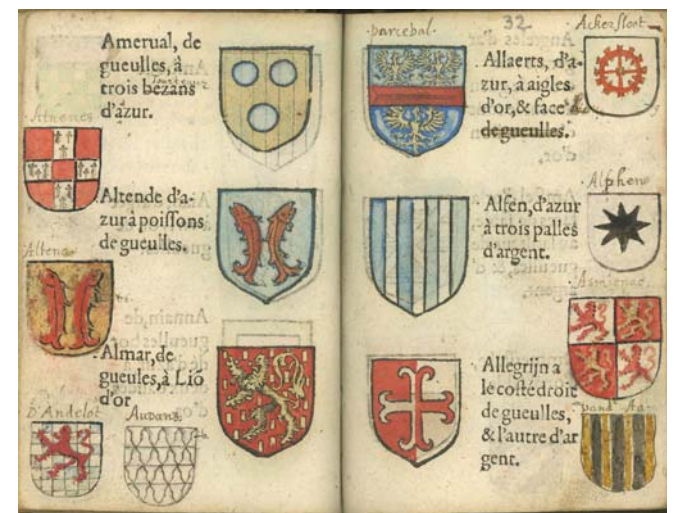 Amerual, de
gueulles, à
trois bezans
d'azur.
Altende d'a-
zur à poiſſons
de gueulles.
Altena
Almar, de
gueules, à Lió
d'or
D'Andelot
32
parcebal.
Ackersloot
Allaerts, d'a-
zur, à aigles
d'or, & face
de gueulles.
Alphen
Alfen, d'azur
à trois palles
d'argent.
Allegrijn a
le coſté droit
de gueulles,
& l'autre d'ar
gent.
vand Aa.